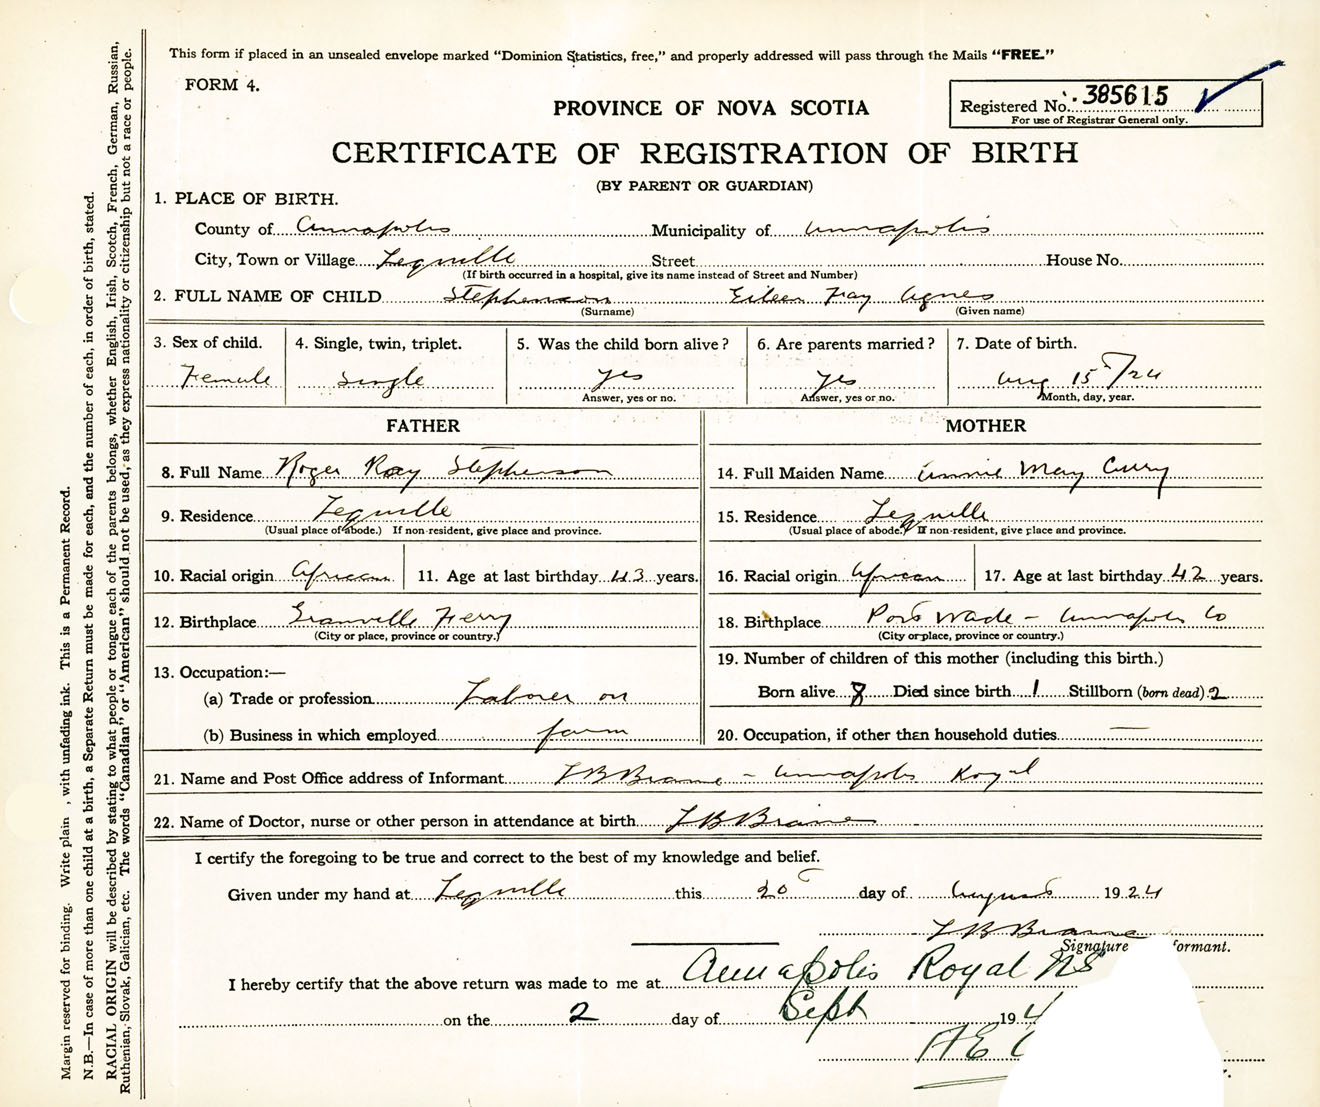 This form if placed in an unsealed envelope marked "Dominion Statistics, free," and properly addressed will pass through the Mails "FREE."
FORM 4.
PROVINCE OF NOVA SCOTIA
Registered No. 385615
For use of Registrar General only.
CERTIFICATE OF REGISTRATION OF BIRTH
(BY PARENT OR GUARDIAN)
1. PLACE OF BIRTH.
County of Annapolis Municipality of Annapolis
City, Town or Village Lequille Street House No.
(If birth occurred in a hospital, give its name instead of Street and Number)
2. FULL NAME OF CHILD Stephenson Eileen Fay Agnes
(Surname) (Given name)
3. Sex of child. 4. Single, twin, triplet. 5. Was the child born alive? 6. Are parents married? 7. Date of birth.
Female Single yes yes Aug 15/24
Answer, yes or no. Answer, yes or no. Month, day, year.
FATHER MOTHER
8. Full Name Roger Ray Stephenson 14. Full Maiden Name Annie May Curry
9. Residence Lequille 15. Residence Lequille
(Usual place of abode.) If non-resident, give place and province. (Usual place of abode.) If non-resident, give place and province.
10. Racial origin African 11. Age at last birthday 43 years. 16. Racial origin African 17. Age at last birthday 42 years.
12. Birthplace Granville Ferry 18. Birthplace Port Wade - Annapolis Co
(City or place, province or country.) (City or place, province or country.)
13. Occupation:— 19. Number of children of this mother (including this birth.)
(a) Trade or profession Laborer on Born alive 8 Died since birth 1 Stillborn (born dead) 2
(b) Business in which employed farm 20. Occupation, if other then household duties —
21. Name and Post Office address of Informant L B Braine - Annapolis Royal
22. Name of Doctor, nurse or other person in attendance at birth L B Braine
I certify the foregoing to be true and correct to the best of my knowledge and belief.
Given under my hand at Lequille this 20 day of August 1924
L B Braine
Signature formant.
I hereby certify that the above return was made to me at Annapolis Royal NS
on the 2 day of Sept 19
A E
Margin reserved for binding. Write plain , with unfading ink. This is a Permanent Record.
N.B.—In case of more than one child at a birth, a Separate Return must be made for each, and the number of each, in order of birth, stated.
RACIAL ORIGIN will be described by stating to what people or tongue each of the parents belongs, whether English, Irish, Scotch, French, German, Russian,
Ruthenian, Slovak, Galician, etc. The words "Canadian" or "American" should not be used, as they express nationality or citizenship but not a race or people.